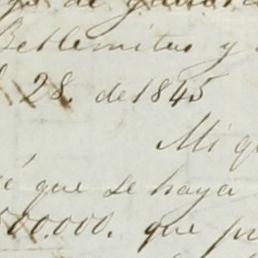 de
Betlemitas y
28. de 1845
Mi q
é que se haya
500.000. que p